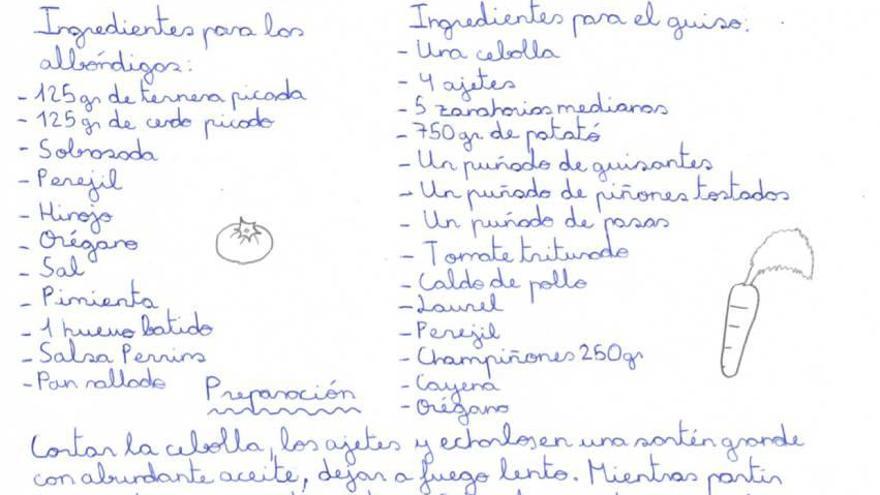 Ingredientes para los
albóndigas:
- 125gr de ternera picada
- 125gr de cerdo picado
- Sobrasada
- Perejil
- Hinojo
- Orégano
- Sal
- Pimienta
- 1 huevo batido
- Salsa Perrins
- Pan rallado
Ingredientes para el guiso:
- Una cebolla
- 4 ajetes
- 5 zanahorias medianas
- 750gr. de patató
- Un puñado de guisantes
- Un puñado de piñones tostados
- Un puñado de pasas
- Tomate triturado
- Caldo de pollo
- Laurel
- Perejil
- Champiñones 250gr
- Cayena
- Orégano
Preparación
Cortar la cebolla, los ajetes y echarlos en una sartén grande
con abundante aceite, dejar a fuego lento. Mientras partir